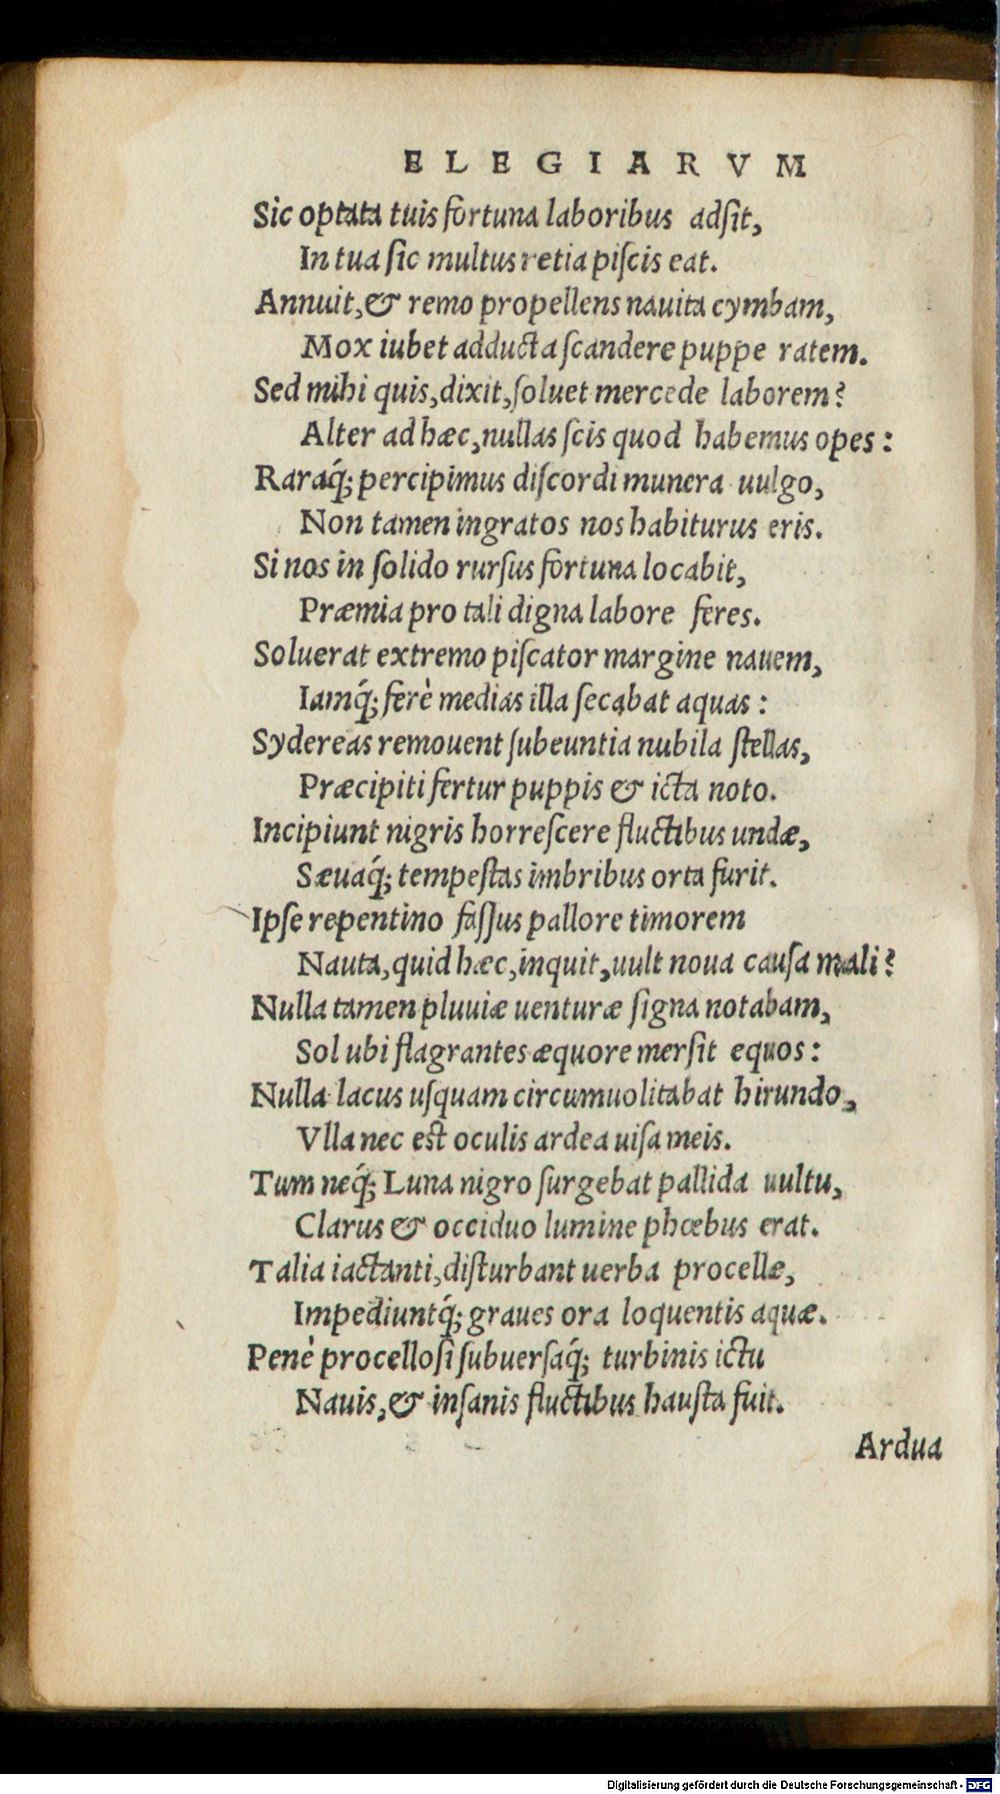 ELEGIARVM
Sic optata tuis fortuna laboribus adſit,
In tua ſic multus retia piſcis eat.
Annuit, & remo propellens nauita cymbam,
Mox iubet adducta ſcandere puppe ratem.
Sed mihi quis, dixit, ſoluet mercede laborem?
Alter ad hæc, nullas ſcis quod habemus opes:
Raraq́; percipimus diſcordi munera uulgo,
Non tamen ingratos nos habiturus eris.
Si nos in ſolido rurſus fortuna locabit,
Præmia pro tali digna labore feres.
Soluerat extremo piſcator margine nauem,
Iamq́; ferè medias illa ſecabat aquas:
Sydereas remouent ſubeuntia nubila ſtellas,
Præcipiti fertur puppis & icta noto.
Incipiunt nigris horreſcere fluctibus undæ,
Sæuaq́; tempeſtas imbribus orta furit.
Ipſe repentino faſſus pallore timorem
Nauta, quid hæc, inquit, uult noua cauſa mali?
Nulla tamen pluuiæ uenturæ ſigna notabam,
Sol ubi flagrantes æquore merſit equos:
Nulla lacus uſquam circumuolitabat hirundo,
Vlla nec eſt oculis ardea uiſa meis.
Tum neq́; Luna nigro ſurgebat pallida uultu,
Clarus & occiduo lumine phœbus erat.
Talia iactanti, diſturbant uerba procellæ,
Impediuntq́; graues ora loquentis aquæ.
Penè procelloſi ſubuerſaq́; turbinis ictu
Nauis, & inſanis fluctibus hauſta fuit.
Ardua
Digitalisierung gefördert durch die Deutsche Forschungsgemeinschaft - DFG